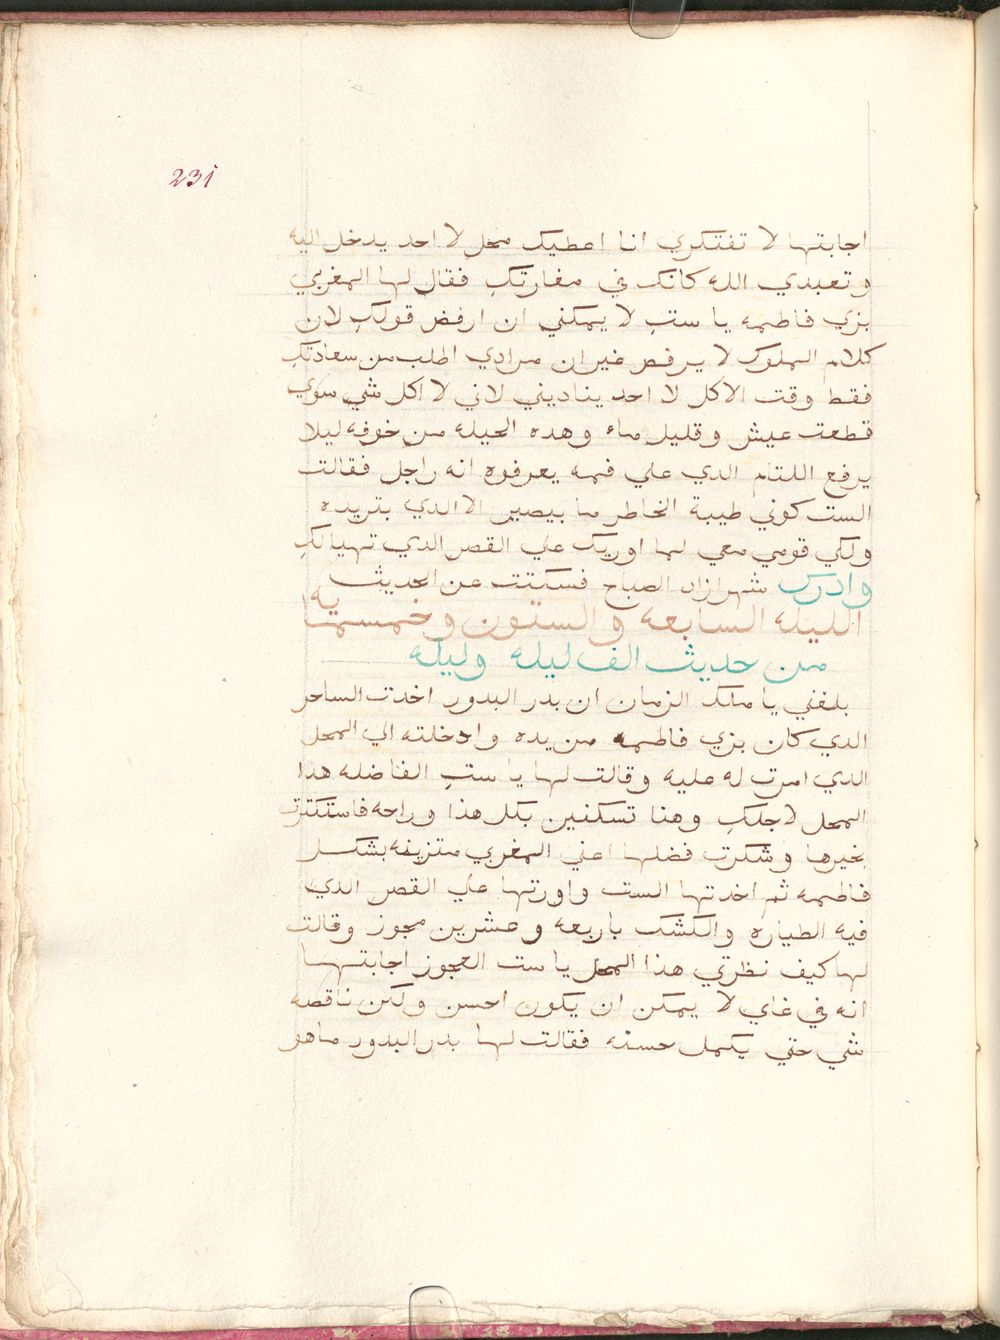 231
اجابتها لا تفتكري انا اعطيك محل لا احد يدخل اليه
وتعبدي الله كانك في مغارتكِ فقال لها المغربي
بزي فاطمه يا ستي لا يمكني ان ارفض قولكِ لان
كلام الملوك لا يرفض غير ان مرادي اطلب من سعادتكِ
فقط وقت الاكل لا احد يناديني لاني لا اكل شي سوي
قطعت عيش وقليل ماء وهده الحيله من خوفه ليلا
يرفع اللتام الدي علي فمه يعرفوه انه راجل فقالت
الست كوني طيبة الخاطر ما بيصير الا الدي بتريده
ولكي قومي معي لما اوريك علي القصر الدي تهيا لكِ
وادرك شهرازاد الصباح فسكتت عن الحديث
الليله السابعه والستون وخمسمايه
من حديث الف ليله وليله
بلغني يا ملك الزمان ان بدر البدور اخدت الساحر
الدي كان بزي فاطمه من يده وادخلته الي المحل
الدي امرت له عليه وقالت لها يا ستي الفاضله هذا
المحل لاجلكِ وهنا تسكنين بكل هذا وراحه فاستكترت
بخيرها وشكرت فضلها اعني المغربي متزيفه بشكل
فاطمه ثم اخدتها الست واورتها علي القصر الدي
فيه الطياره والكشك باربعه وعشرين مجوز وقالت
لها كيف نظرتي هذا المحل يا ست العجوز اجابتها
انه في غاي لا يمكن ان يكون احسن ولكن ناقصه
شي حتي يكمل حسنه فقالت لها بدر البدور ما هو